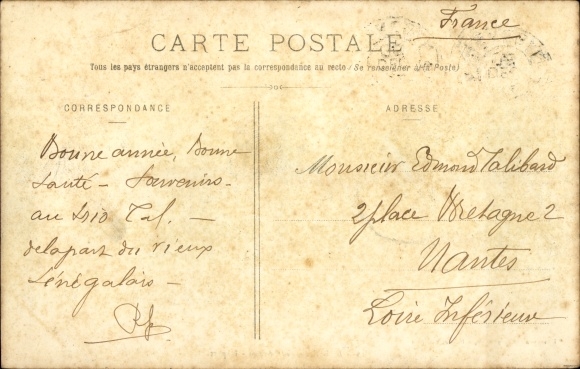 France
CARTE POSTALE
Tous les pays étrangers n'acceptent pas la correspondance au recto (Se renseigner à la Poste)
CORRESPONDANCE
Bonne année, Bonne
Santé - Souvenirs -
au Trio Tal. -
de la part du vieux
Sénégalais -
ADRESSE
Monsieur Edmond Talibard
2 place Bretagne 2
Nantes
Loire Inférieure